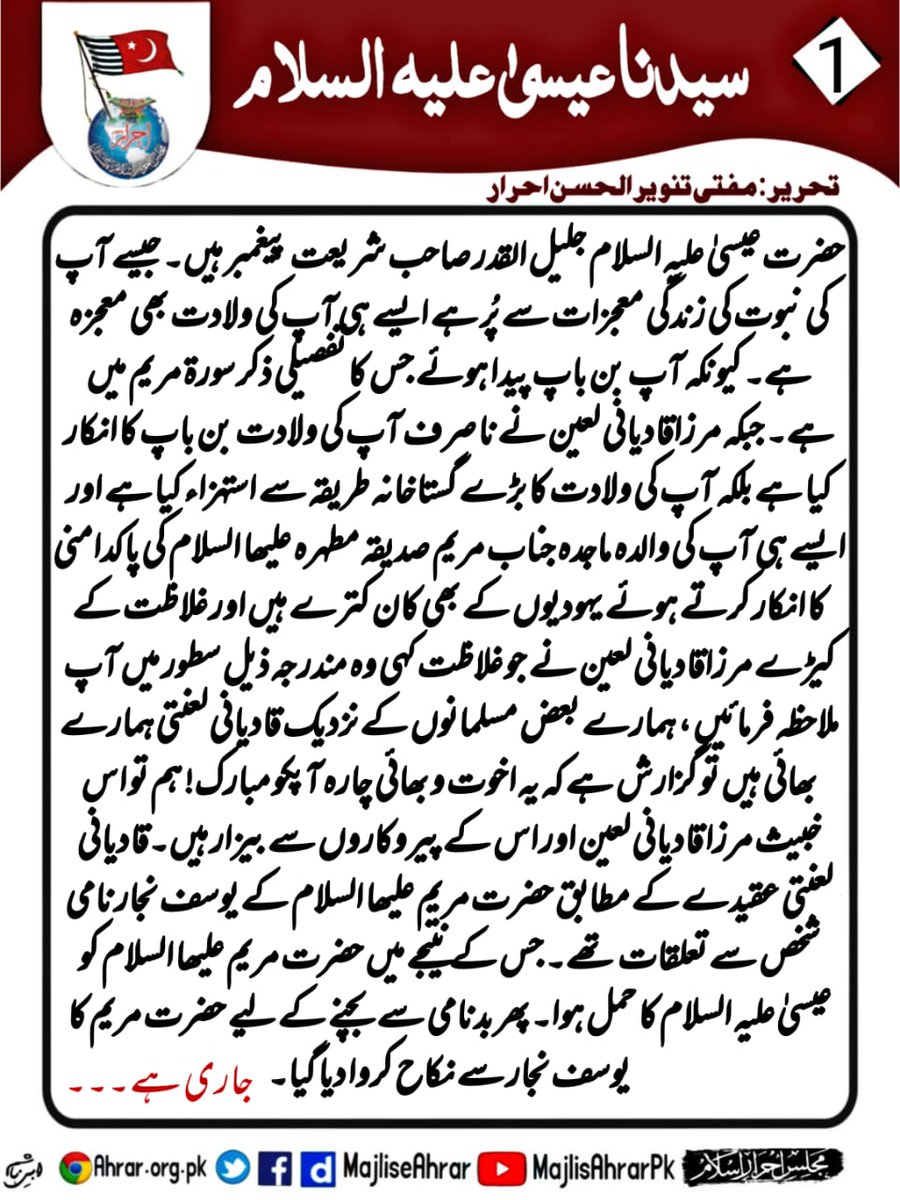 سیدنا عیسیٰ علیہ السلام
1
احرار
تحریر: مفتی تنویر الحسن احرار
حضرت عیسیٰ علیہ السلام جلیل القدر صاحب شریعت پیغمبر ہیں۔ جیسے آپ
کی نبوت کی زندگی معجزات سے پُر ہے ایسے ہی آپ کی ولادت بھی معجزہ
ہے۔ کیونکہ آپ بن باپ پیدا ہوئے جس کا تفصیلی ذکر سورۃ مریم میں
ہے۔ جبکہ مرزا قادیانی لعین نے نا صرف آپ کی ولادت بن باپ کا انکار
کیا ہے بلکہ آپ کی ولادت کا بڑے گستاخانہ طریقہ سے استہزاء کیا ہے اور
ایسے ہی آپ کی والدہ ماجدہ جناب مریم صدیقہ مطہرہ علیھا السلام کی پاکدامنی
کا انکار کرتے ہوئے یہودیوں کے بھی کان کترے ہیں اور غلاظت کے
کیڑے مرزا قادیانی لعین نے جو غلاظت کہی وہ مندرجہ ذیل سطور میں آپ
ملاحظہ فرمائیں، ہمارے بعض مسلمانوں کے نزدیک قادیانی لعنتی ہمارے
بھائی ہیں تو گزارش ہے کہ یہ اخوت و بھائی چارہ آپکو مبارک! ہم تو اس
خبیث مرزا قادیانی لعین اور اس کے پیروکاروں سے بیزار ہیں۔ قادیانی
لعنتی عقیدے کے مطابق حضرت مریم علیھا السلام کے یوسف نجار نامی
شخص سے تعلقات تھے۔ جس کے نتیجے میں حضرت مریم علیھا السلام کو
عیسیٰ علیہ السلام کا حمل ہوا۔ پھر بدنامی سے بچنے کے لیے حضرت مریم کا
یوسف نجار سے نکاح کروا دیا گیا۔ جاری ہے۔۔۔
Ahrar.org.pk MajliseAhrar MajlisAhrarPk مجلس احرار اسلام